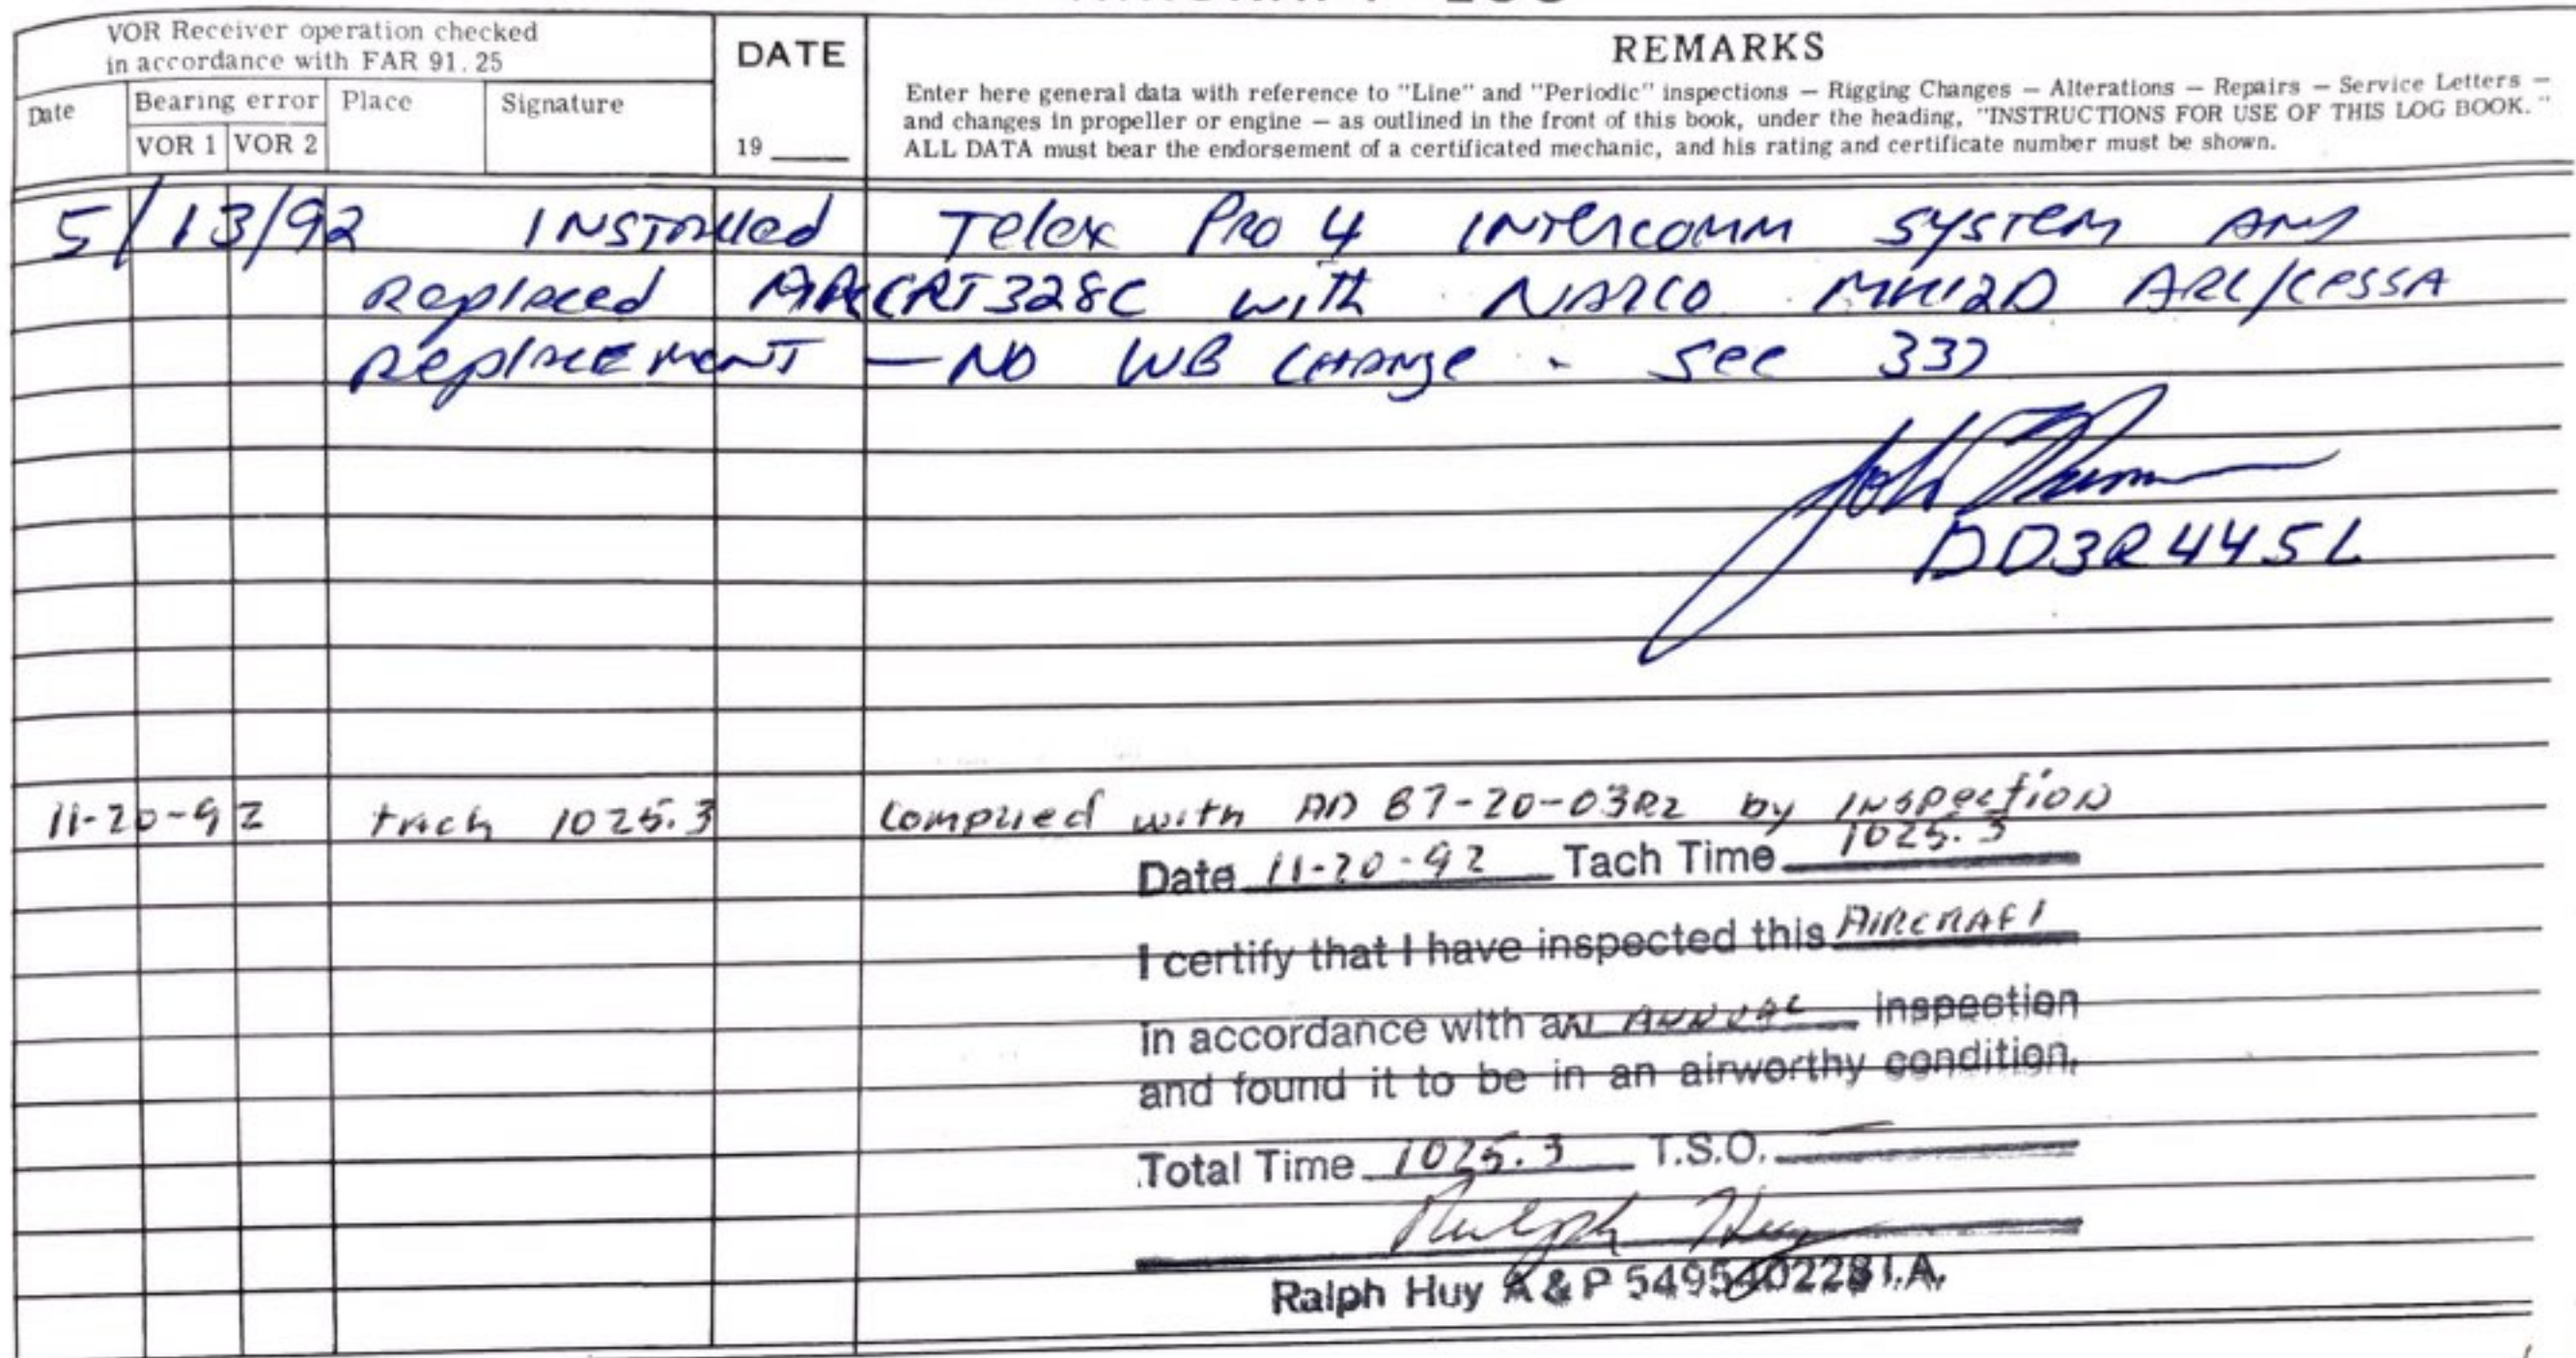 VOR Receiver operation checked
in accordance with FAR 91.25
Date
Bearing error
VOR 1 VOR 2
Place
Signature
DATE
19
REMARKS
Enter here general data with reference to "Line" and "Periodic" inspections — Rigging Changes — Alterations — Repairs — Service Letters —
and changes in propeller or engine — as outlined in the front of this book, under the heading, "INSTRUCTIONS FOR USE OF THIS LOG BOOK."
ALL DATA must bear the endorsement of a certificated mechanic, and his rating and certificate number must be shown.
5/13/92 INSTALLED Telex PRO 4 INTERCOMM SYSTEM AND
Replaced with NARCO MK12D ARC/CESSA
REPLACEMENT — NO WB CHANGE - See 337
DD3R445L
11-20-92 tach 1025.3 Complied with AD 87-20-03R2 by INSPECTION
Date 11-20-92 Tach Time 1025.3
I certify that I have inspected this AIRCRAFT
in accordance with an ANNUAL inspection
and found it to be in an airworthy condition.
Total Time 1025.3 T.S.O. —
Ralph Huy
Ralph Huy A & P I.A.